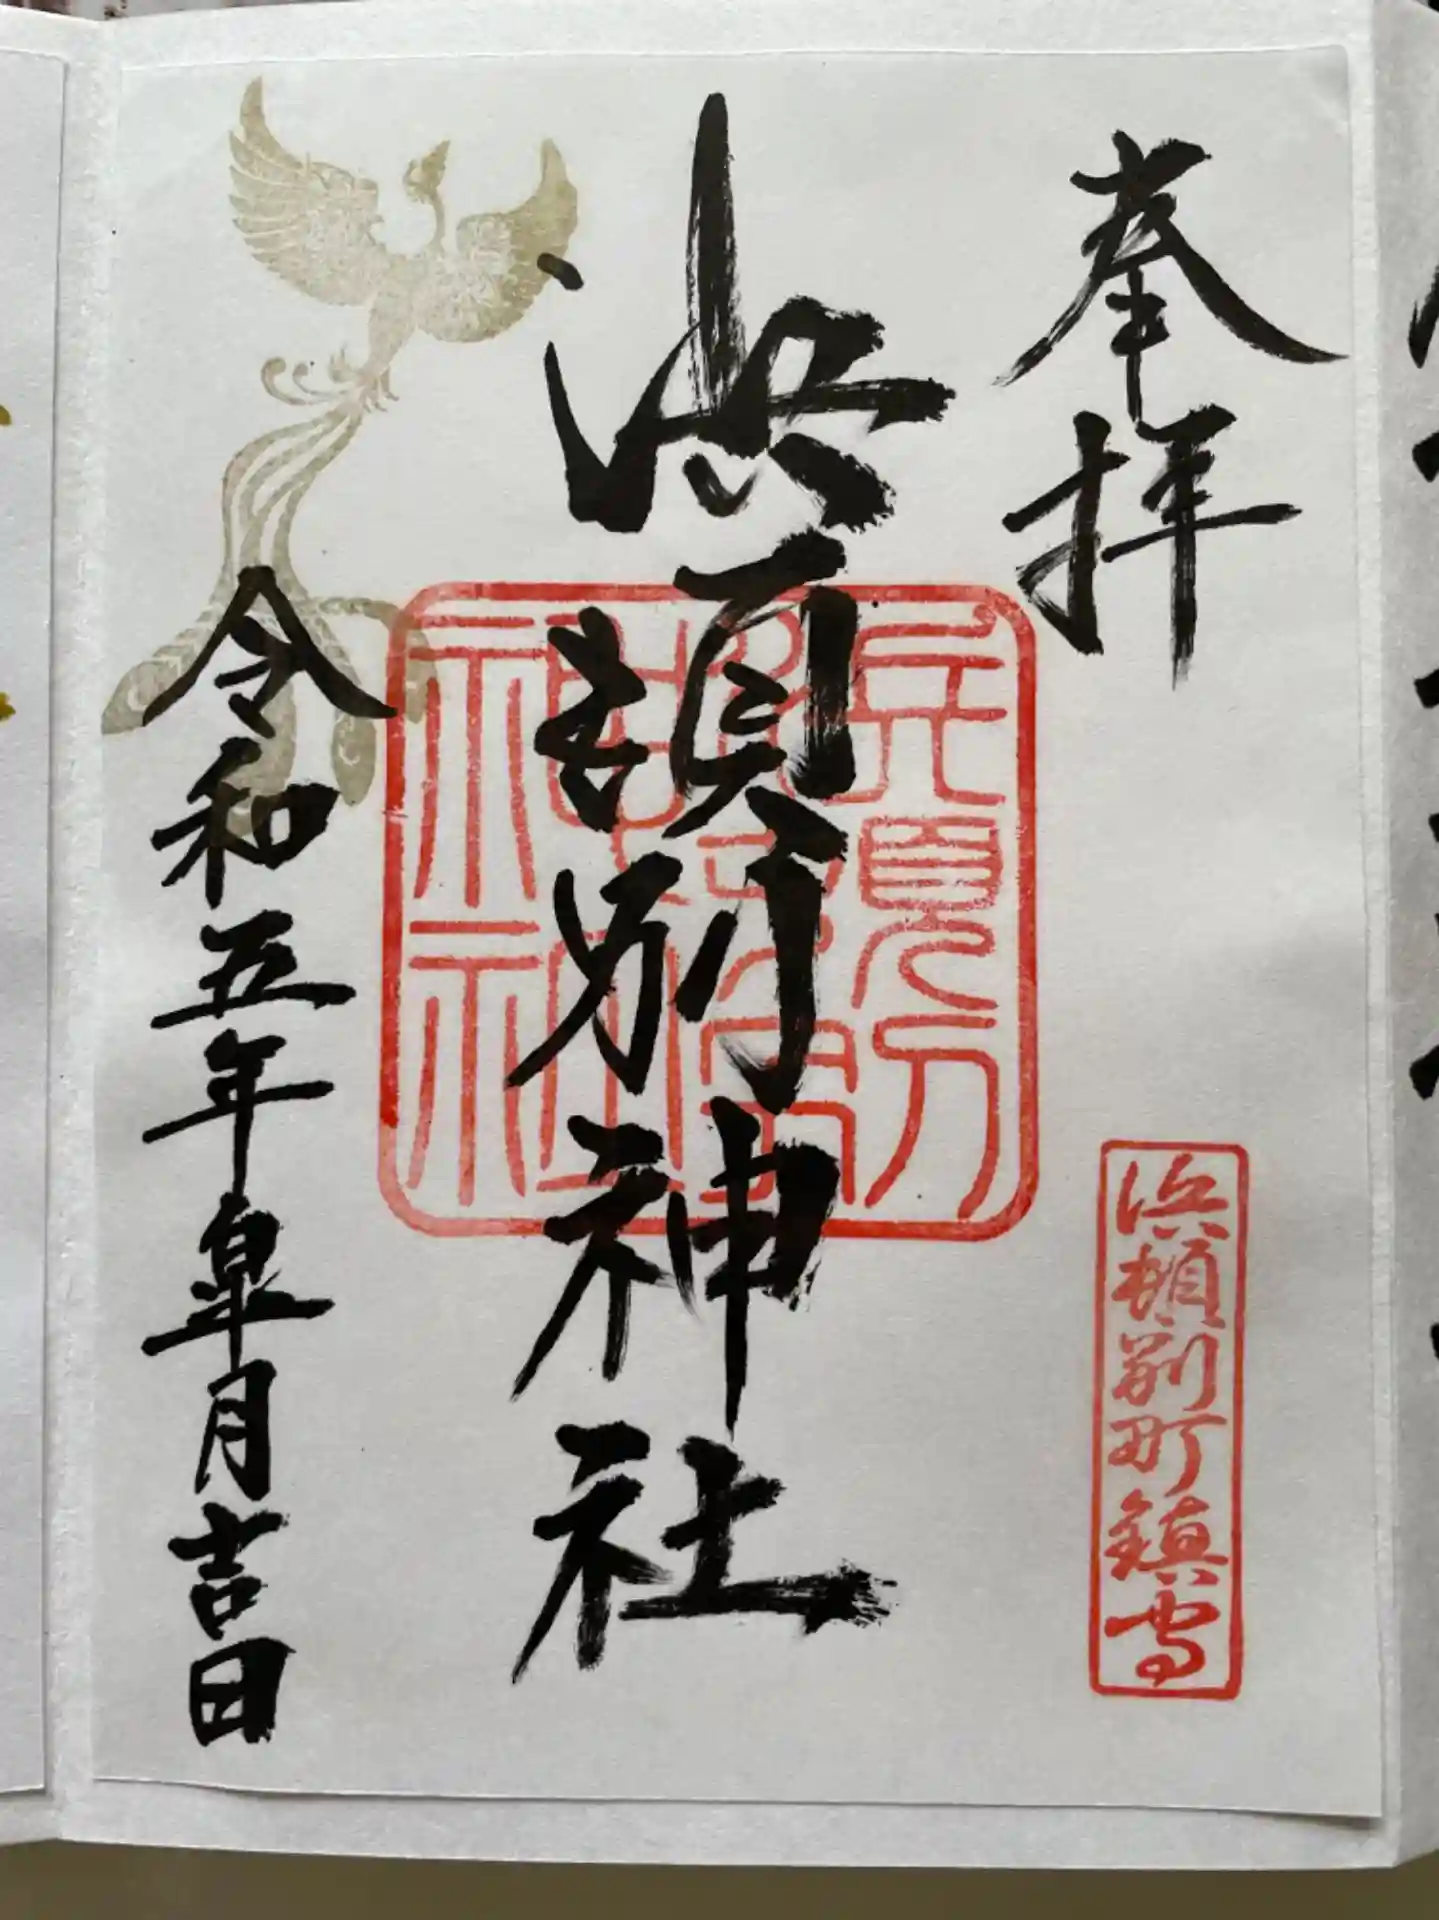 奉拝
浜頓別町鎮守
浜頓別神社
令和五年皐月吉日